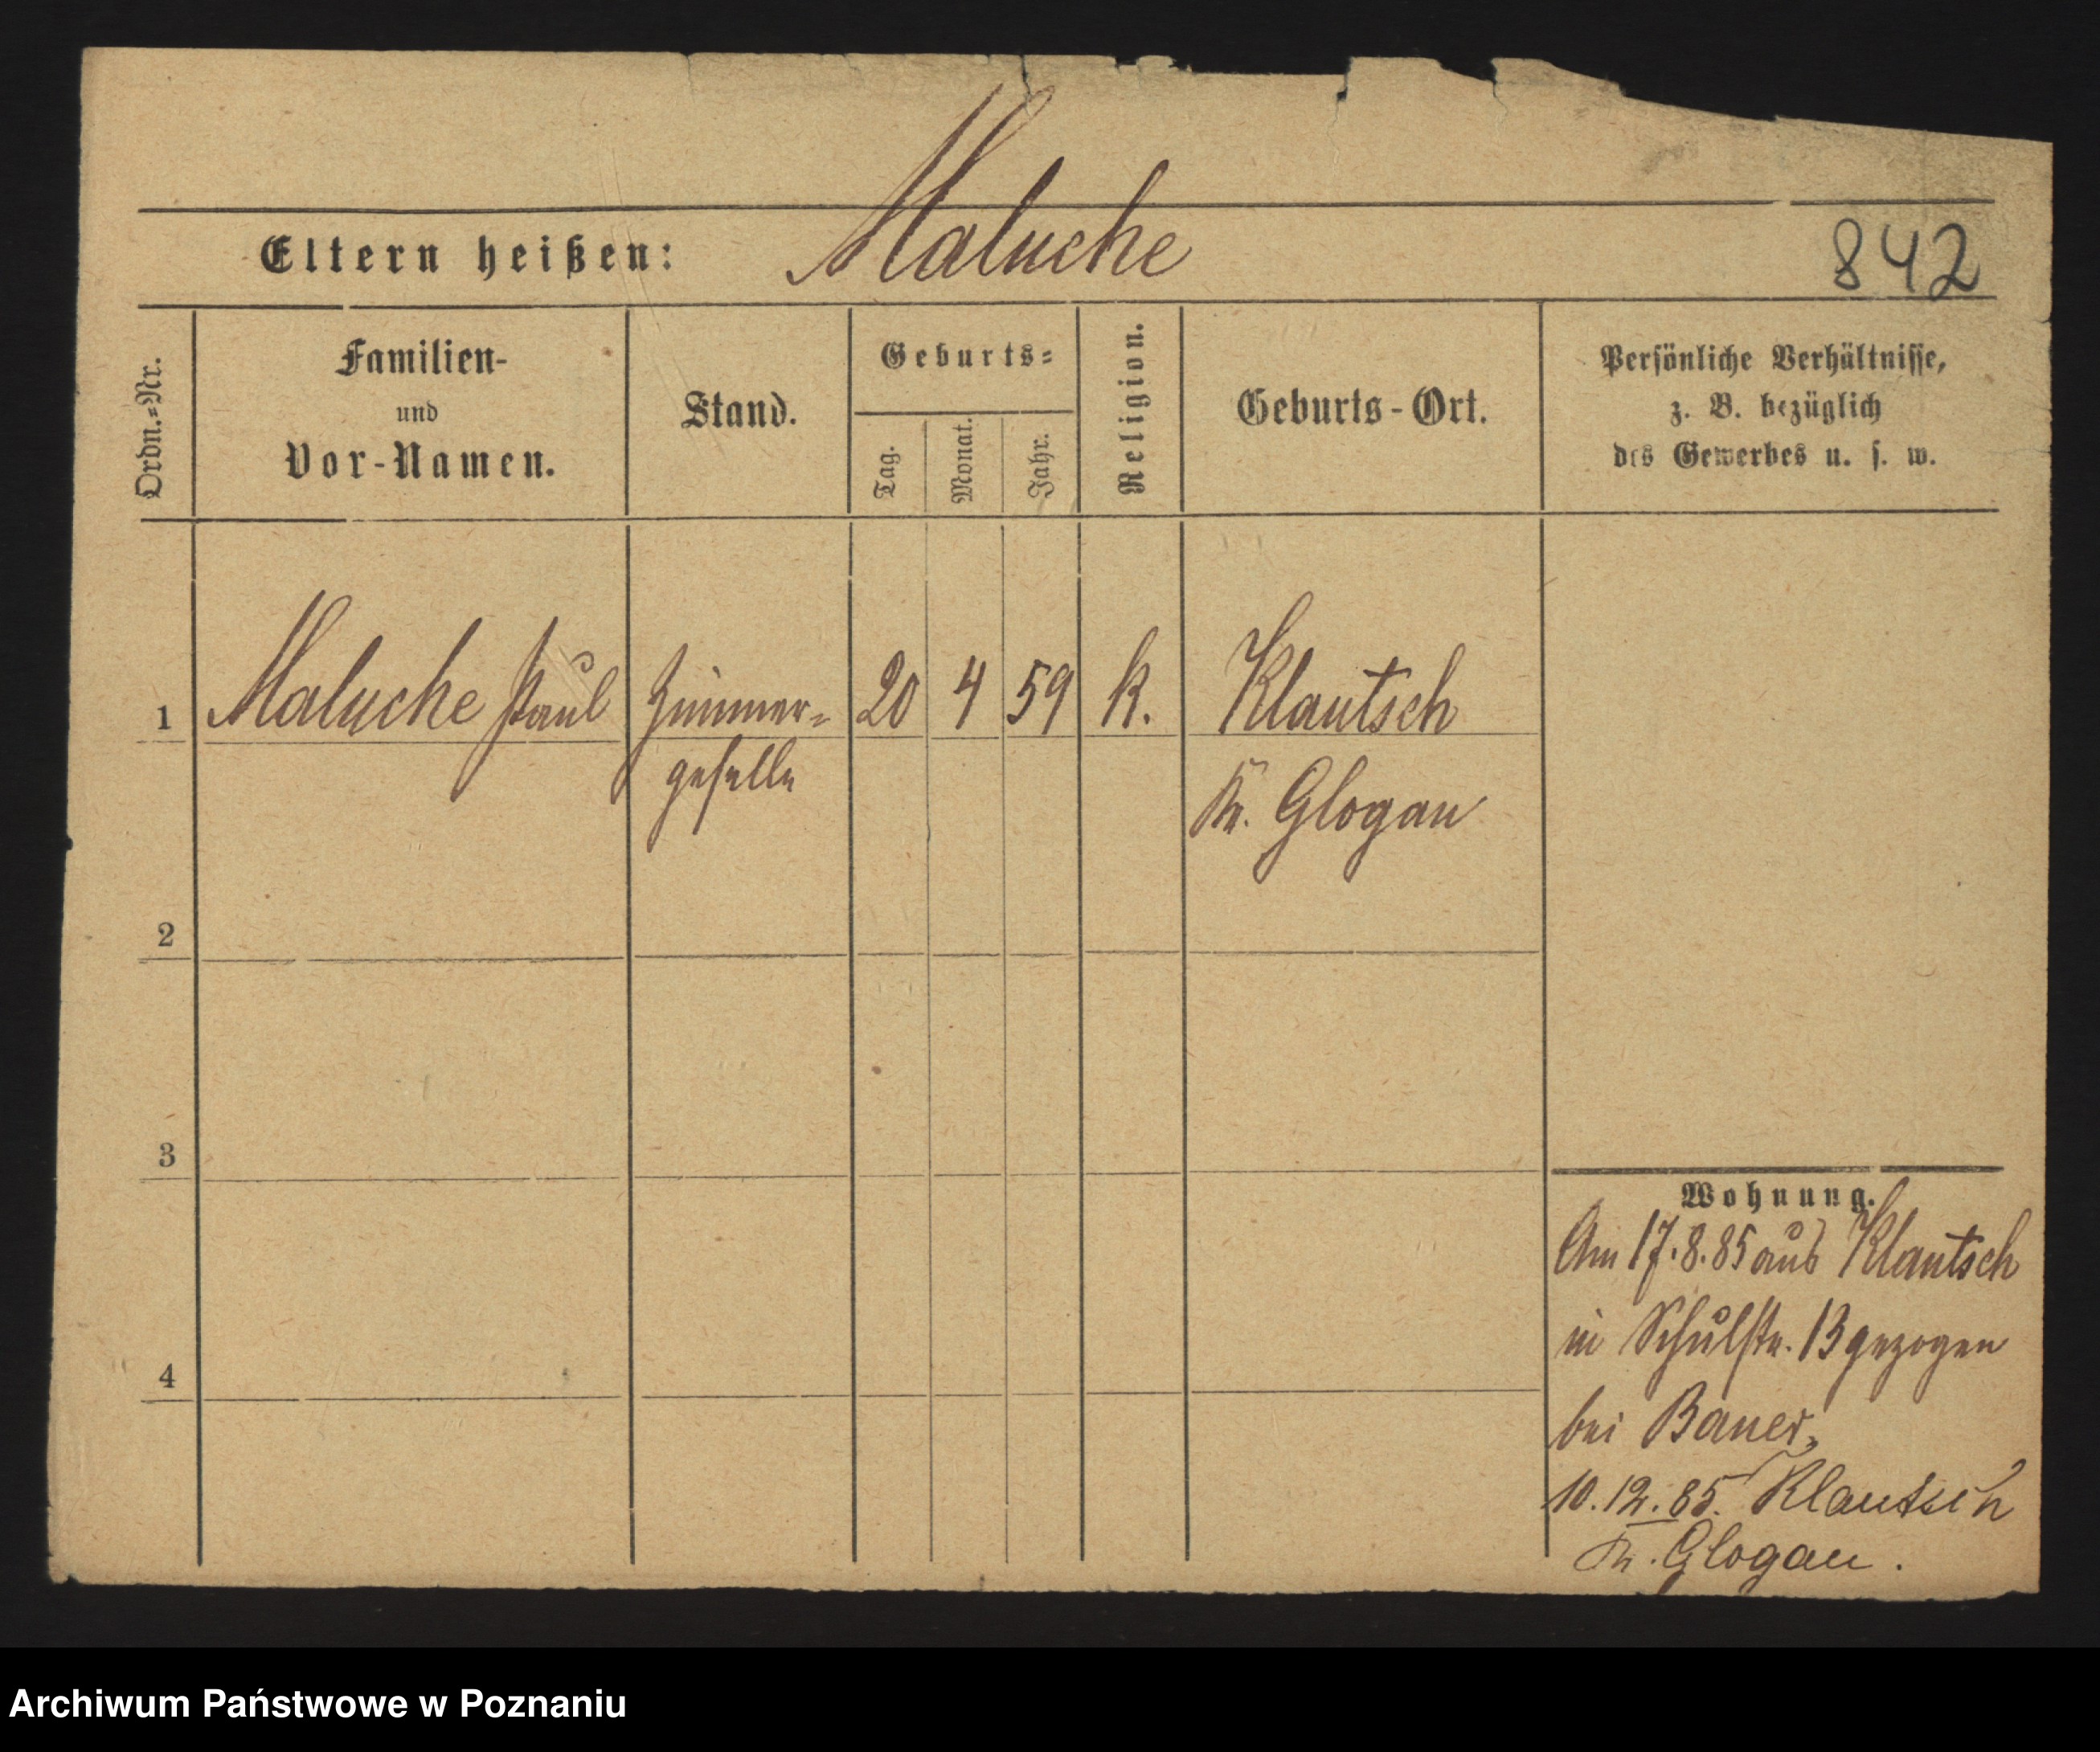 Maluche
Eltern heißen:
842
Ordn.=Nr.
Familien-
und
Vor-Namen.
Stand.
Geburts=
Tag.
Monat.
Jahr.
Religion.
Geburts-Ort.
Persönliche Verhältnisse,
z. B. bezüglich
des Gewerbes u. s. w.
1 Maluche Paul Zimmer= 20 4 59 k. Klautsch
geselle Kr. Glogau
2
3
4
Wohnung.
Am 17.8.85 aus Klautsch
in Schulstr. 13 gezogen
bei Bauer.
10.12.85. Klautsch
Kr. Glogau.
Archiwum Państwowe w Poznaniu